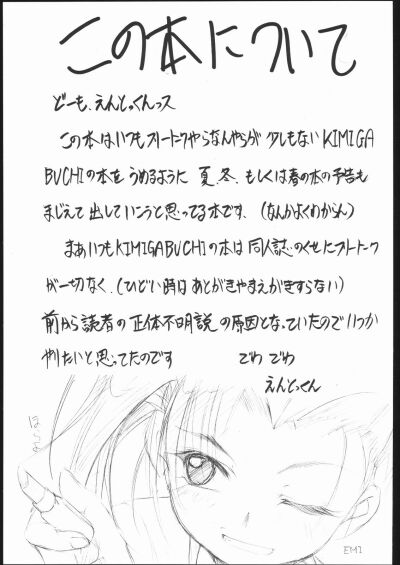 この本について
どーも、えんどっくんっス
この本はいつもフリートークやらなんやらが少しもない KIMIGA
BUCHIの本を うめるように 夏、冬、もしくは春の本の予告も
まじえて 出していこうと思ってる本です。(なんかよくわからん)
まあいつもKIMIGABUCHIの本は同人誌のくせにフリートーク
が一切なく、(ひどい時は あとがきやまえがきすらない)
前から読者の正体不明説の原因となっていたのでいつか
やりたいと思ってたのです でわ でわ
えんどっくん
EMI